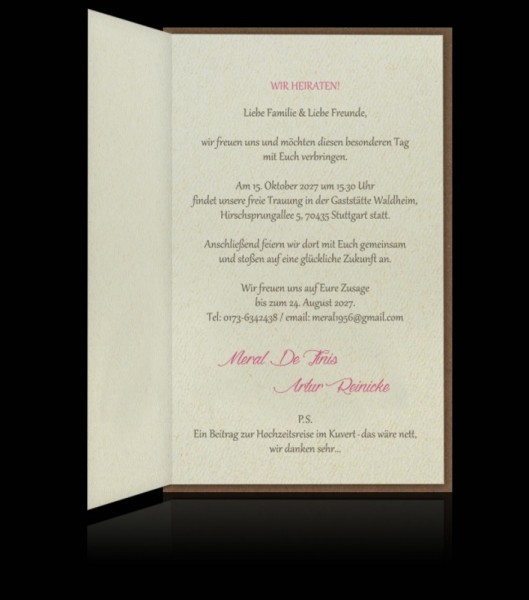 WIR HEIRATEN!
Liebe Familie & Liebe Freunde,
wir freuen uns und möchten diesen besonderen Tag
mit Euch verbringen.
Am 15. Oktober 2027 um 15.30 Uhr
findet unsere freie Trauung in der Gaststätte Waldheim,
Hirschsprungallee 5, 70435 Stuttgart statt.
Anschließend feiern wir dort mit Euch gemeinsam
und stoßen auf eine glückliche Zukunft an.
Wir freuen uns auf Eure Zusage
bis zum 24. August 2027.
Tel: 0173-6342438 / email: meral1956@gmail.com
Meral De Tinis
Artur Reinicke
P.S.
Ein Beitrag zur Hochzeitsreise im Kuvert - das wäre nett,
wir danken sehr...